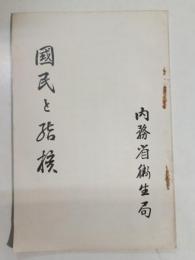 內務省衛生局
國民と結核